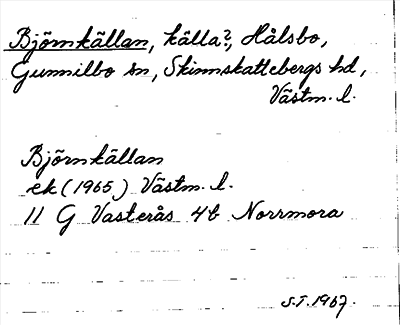 Björnkällan, källa?, Hålsbo,
Gunnilbo sn, Skinnskattebergs hd,
Västm. l.
Björnkällan
ek (1965) Västm. l.
11 G Vasterås 4b Norrmora
S.T. 1967.